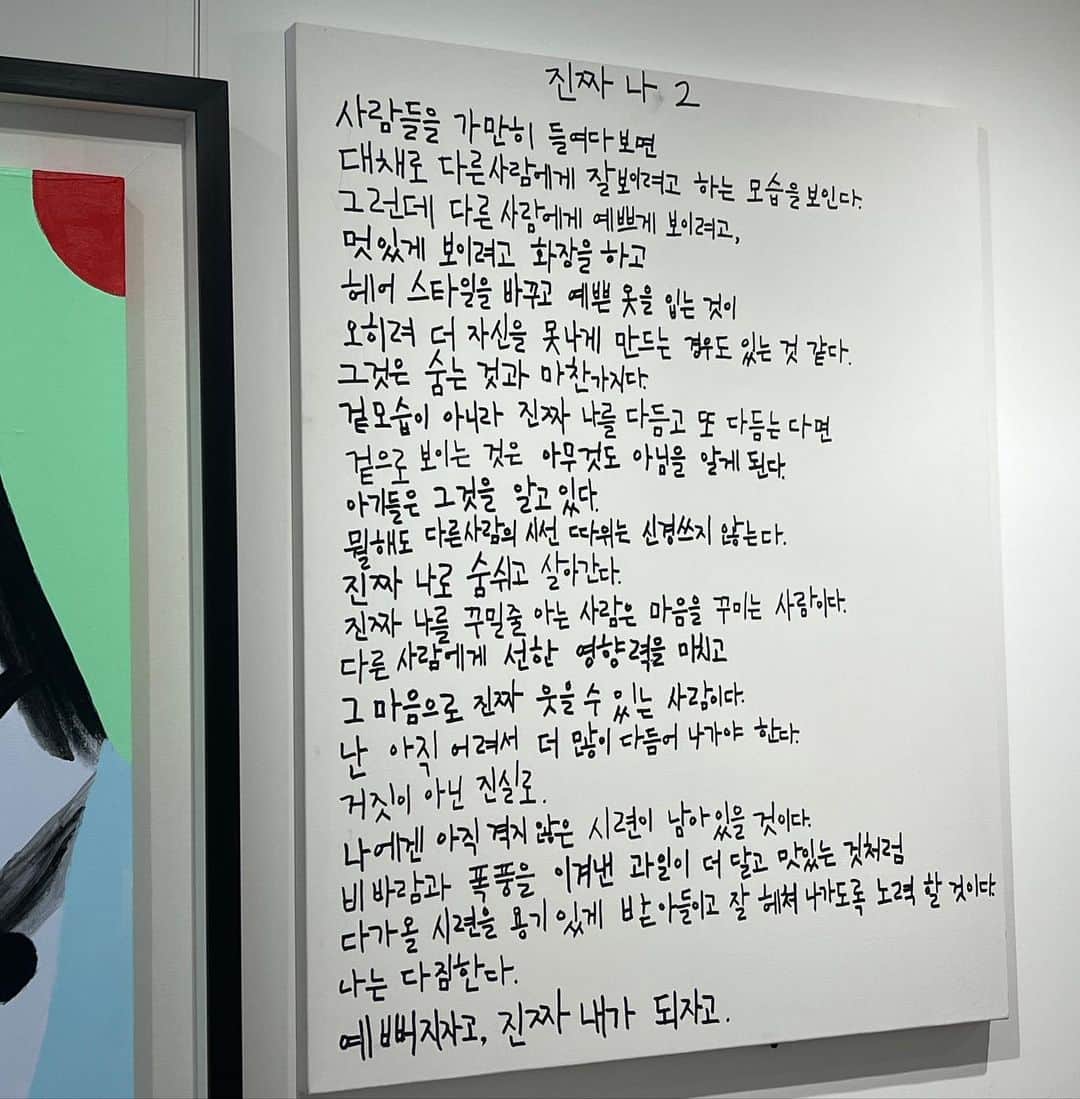 진짜 나 2
사람들을 가만히 들여다보면
대채로 다른사람에게 잘보이려고 하는 모습을보인다.
그런데 다른 사람에게 예쁘게 보이려고,
멋있게 보이려고 화장을 하고
헤어 스타일을 바꾸고 예쁜 옷을 입는 것이
오히려 더 자신을 못나게 만드는 경우도 있는 것 같다.
그것은 숨는 것과 마찬가지다.
겉모습이 아니라 진짜 나를 다듬고 또 다듬는다면
겉으로 보이는 것은 아무것도 아님을 알게 된다.
아기들은 그것을 알고 있다.
뭘해도 다른사람의 시선 따위는 신경쓰지 않는다.
진짜 나로 숨쉬고 살아간다.
진짜 나를 꾸밀줄 아는 사람은 마음을 꾸미는 사람이다.
다른 사람에게 선한 영향력을 미치고
그 마음으로 진짜 웃을 수 있는 사람이다.
난 아직 어려서 더 많이 다듬어 나가야 한다.
거짓이 아닌 진실로.
나에겐 아직 격지 않은 시련이 남아있을 것이다.
비바람과 폭풍을 이겨낸 과일이 더 달고 맛있는 것처럼
다가올 시련을 용기 있게 받아들이고 잘 헤쳐 나가도록 노력 할 것이다.
나는 다짐한다.
예뻐지자고, 진짜 내가 되자고.